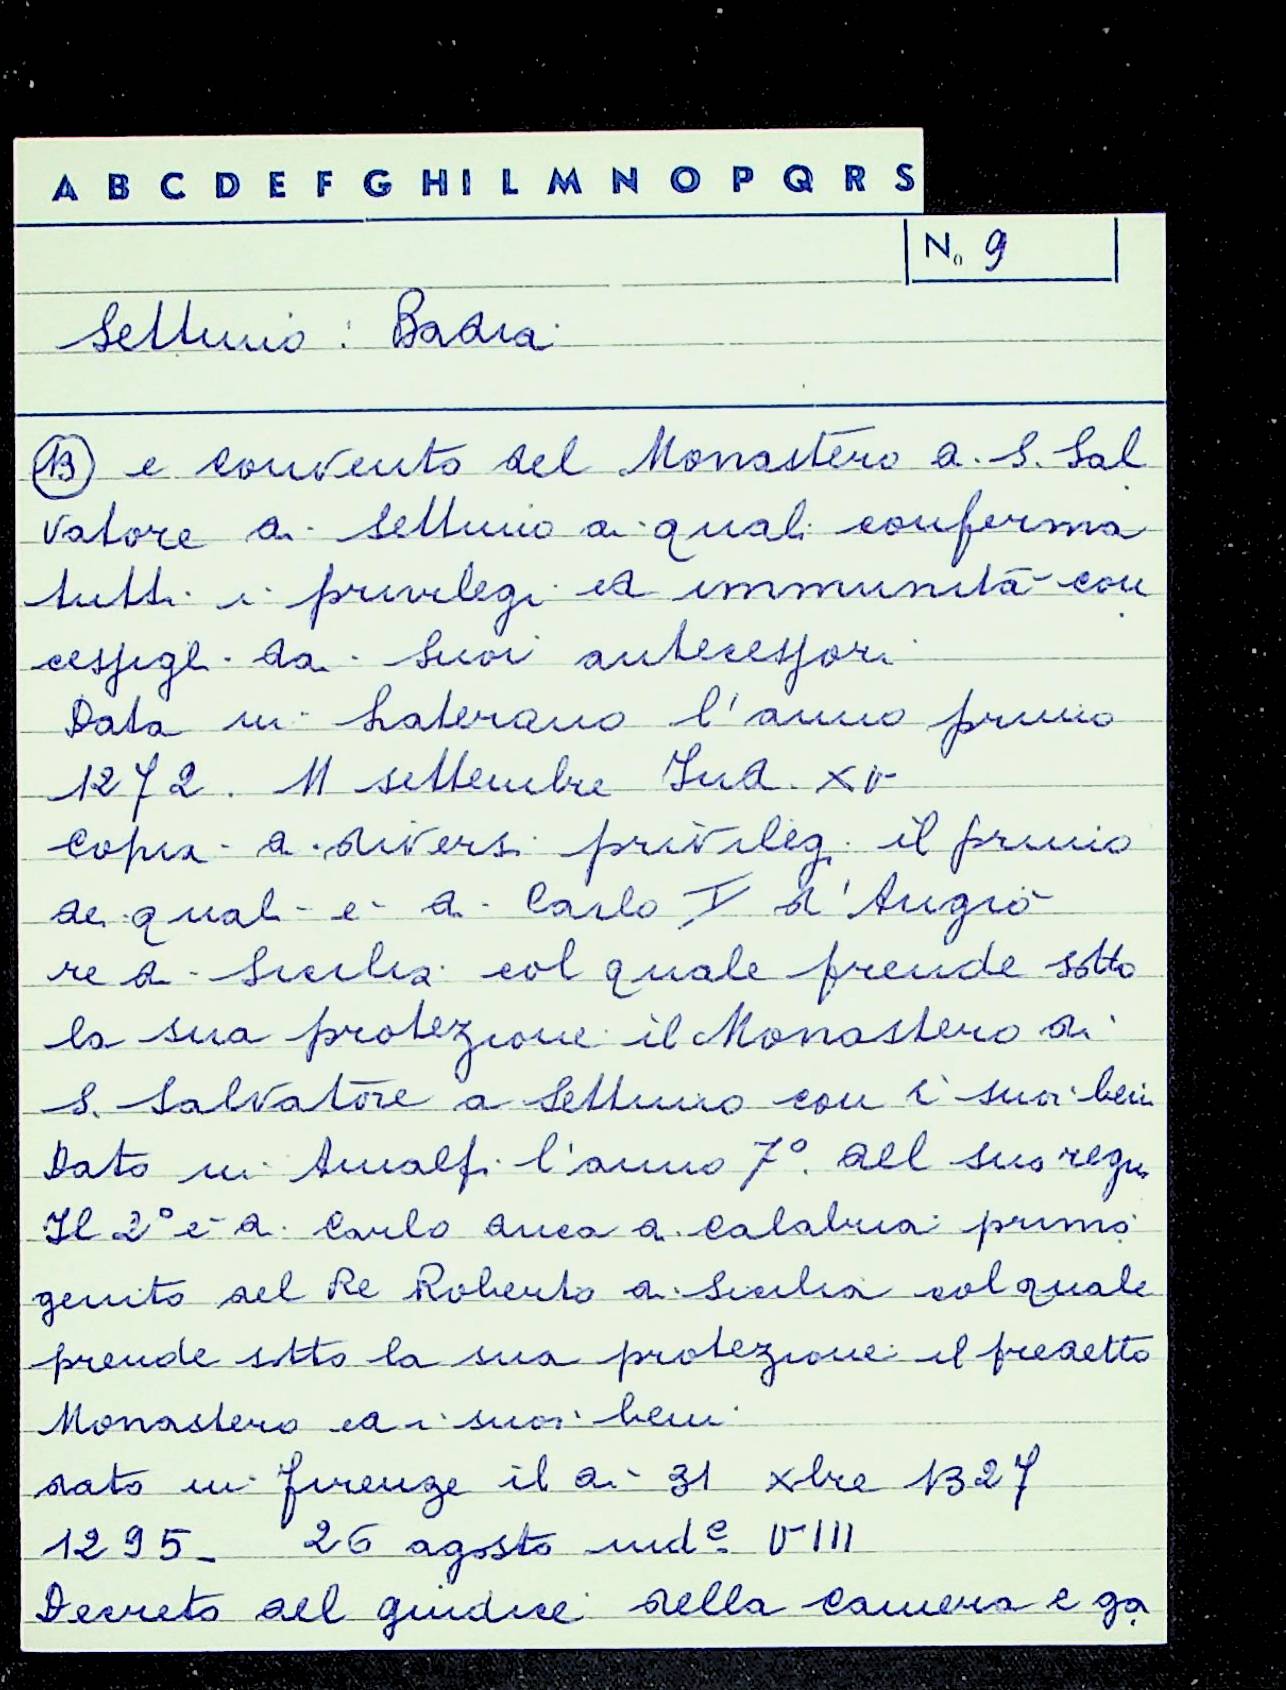 A B C D E F G H I L M N O P Q R S
N. 9
Settimo: Badia
13 e convento del Monastero di S. Sal
vatore a Settimo ai quali conferma
tutti i privilegi ed immunità con
cessigli dai suoi antecessori
Data in Laterano l'anno primo
1272. 11 settembre Ind. XV
Copia di diversi privilegi il primo
dei quali è di Carlo I d'Angiò
re di Sicilia col quale prende sotto
la sua protezione il Monastero di
S. Salvatore a Settimo con i suoi beni
Dato in Amalfi l'anno 7°. del suo regn
Il 2° è di Carlo duca di Calabria primo
genito del Re Roberto di Sicilia col quale
prende sotto la sua protezione il predetto
Monastero ed i suoi beni
dato in Firenze il dì 31 Xbre 1327
1295- 26 agosto indᵉ VIII
Decreto del giudice della Camera e ga